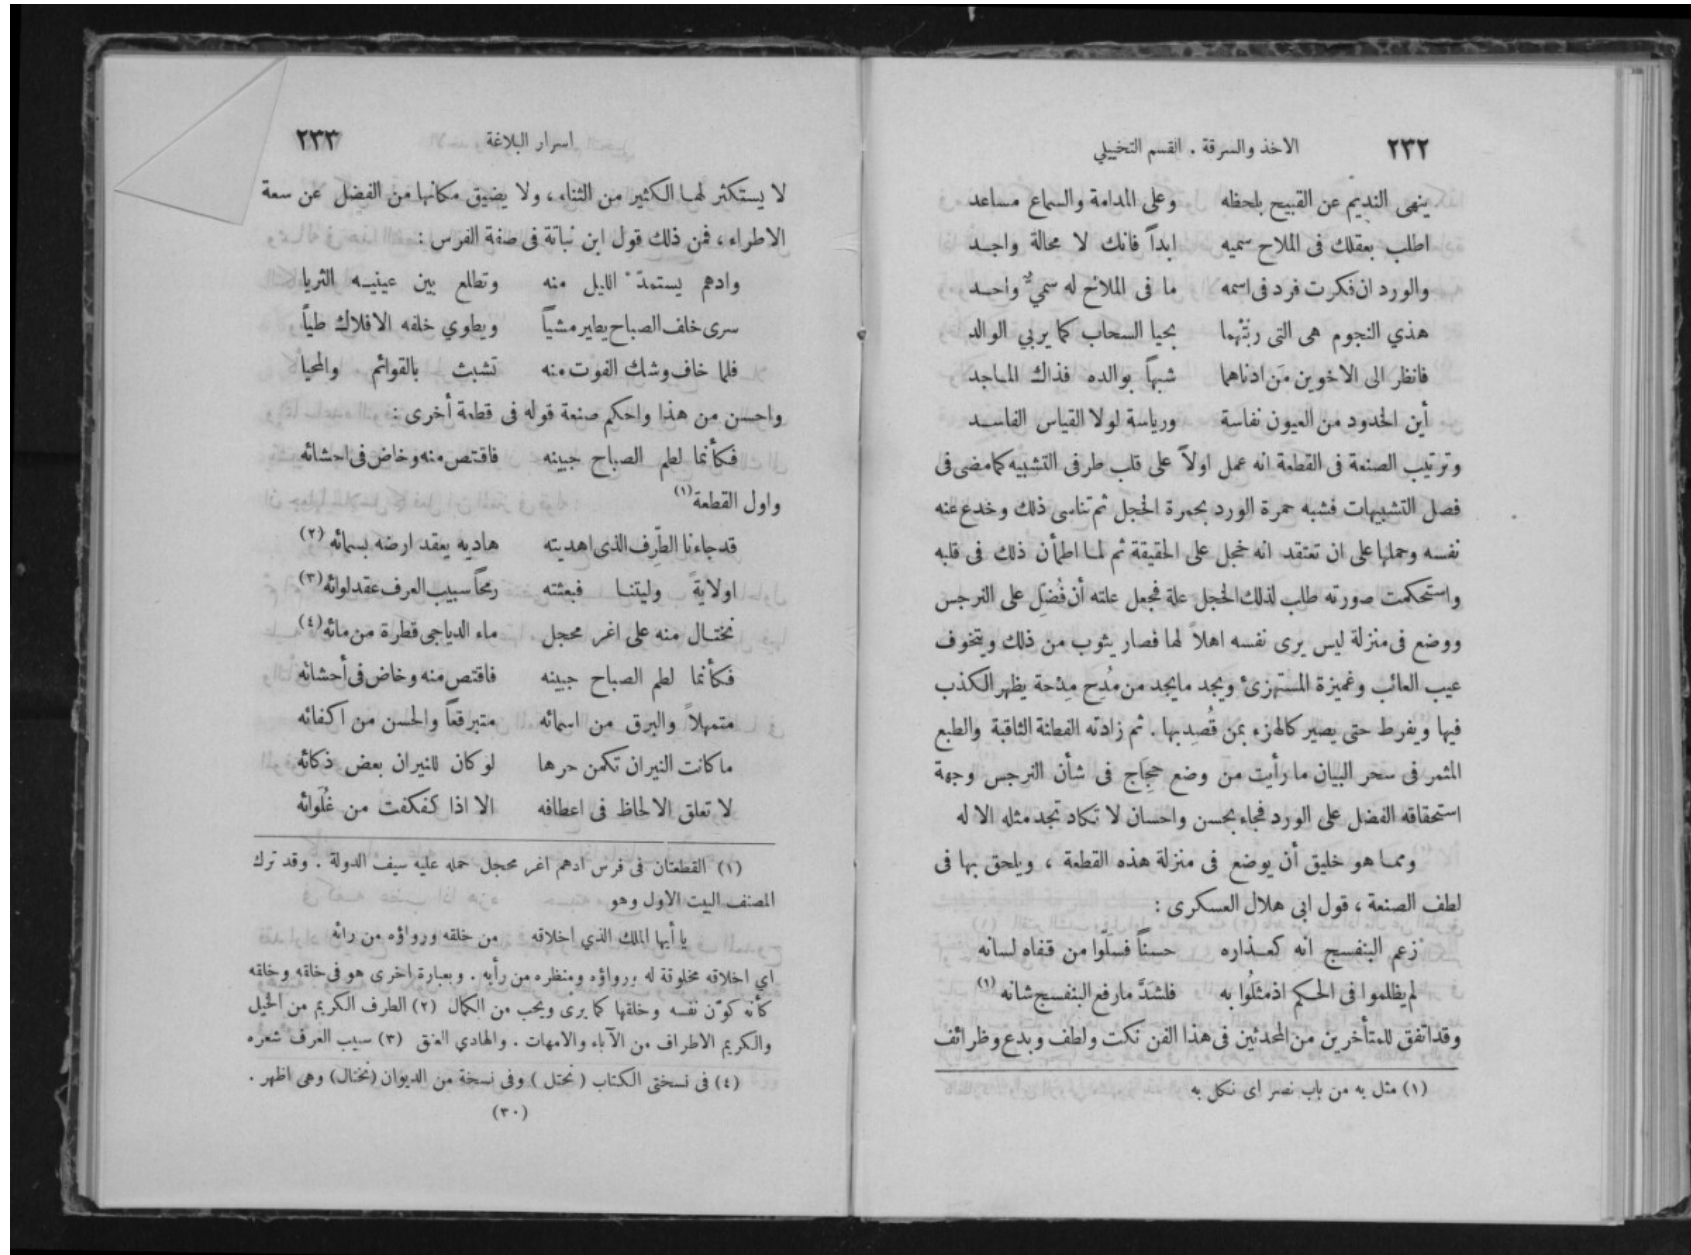 ٢٣٢ الاخذ والسرقة . القسم التخييلي
ينهى النديم عن القبيح بلحظه وعلى المدامة والسماع مساعد
اطلب بعقلك فى الملاح سميه ابداً فانك لا محالة واجد
والورد ان فكرت فرد فى اسمه ما فى الملاح له سميٌّ واحد
هذي النجوم هى التى ربَّتْهما بحيا السحاب كما يربي الوالد
فانظر الى الاخوين مَن ادناهما شبهاً بوالده فذاك الماجد
أين الخدود من العيون نفاسة ورياسة لولا القياس الفاسد
وترتيب الصنعة فى القطعة انه عمل اولاً على قلب طرفى التشبيه كما مضى فى
فصل التشبيهات فشبه حمرة الورد بحمرة الخجل ثم تناسى ذلك وخدع عنه
نفسه وحملها على ان تعتقد انه خجل على الحقيقة ثم لما اطمأن ذلك فى قلبه
واستحكمت صورته طلب لذلك الخجل علة فجعل علته أن فُضّل على النرجس
ووضع فى منزلة ليس يرى نفسه اهلاً لها فصار يثوب من ذلك ويتخوف
عيب العائب وغميزة المستهزئ ويجد مايجد من مُدِح مِدْحة يظهر الكذب
فيها ويفرط حتى يصير كالهزء بمن قُصِد بها . ثم زادته الفطنة الثاقبة والطبع
المثمر فى سحر البيان ما رأيت من وضع حِجَاج فى شأن النرجس وجهة
استحقاقه الفضل على الورد فجاء بحسن واحسان لا تكاد تجد مثله الا له
ومما هو خليق أن يوضع فى منزلة هذه القطعة ، ويلحق بها فى
لطف الصنعة ، قول ابى هلال العسكرى :
زعم البنفسج انه كعذاره حسناً فسلُّوا من قفاه لسانه
لم يظلموا فى الحكم اذ مثلُوا به فلشدَّ ما رفع البنفسج شانه (١)
وقد اتفق للمتأخرين من المحدثين فى هذا الفن نكت ولطف وبدع وظرائف
(١) مثل به من باب نصر اى نكل به
اسرار البلاغة ٢٣٣
لا يستكثر لها الكثير من الثناء ، ولا يضيق مكانها من الفضل عن سعة
الاطراء ، فمن ذلك قول ابن نباتة فى صفة الفرس :
وادهم يستمدّ الليل منه وتطلع بين عينيه الثريا
سرى خلف الصباح يطير مشياً ويطوي خلفه الافلاك طياً
فلما خاف وشك الفوت منه تشبث بالقوائم والمحيا
واحسن من هذا واحكم صنعة قوله فى قطعة أخرى :
فكأنما لطم الصباح جبينه فاقتص منه وخاض فى احشائه
واول القطعة (١)
قد جاءنا الطِّرف الذى اهديته هاديه يعقد ارضه بسمائه (٢)
اولايةً وليتنا فبعثته رمحاً سبيب العرف عقد لوائه (٣)
نختال منه على اغر محجل ماء الدياجى قطرة من مائه (٤)
فكأنما لطم الصباح جبينه فاقتص منه وخاض فى أحشائه
متمهلاً والبرق من اسمائه متبرقعاً والحسن من اكفائه
ما كانت النيران تكمن حرها لو كان للنيران بعض ذكائه
لا تعلق الالحاظ فى اعطافه الا اذا كفكفت من غُلَوائه
(١) القطعتان فى فرس ادهم اغر محجل حمله عليه سيف الدولة . وقد ترك
المصنف البيت الاول وهو
يا أيها الملك الذي اخلاقه من خلقه ورواؤه من رائه
اي اخلاقه مخلوقة له ورواؤه ومنظره من رأيه . وبعبارة اخرى هو فى خلقه وخلقه
كأنه كوّن نفسه وخلقها كما يرى ويحب من الكمال (٢) الطرف الكريم من الخيل
والكريم الاطراف من الآباء والامهات . والهادي العنق (٣) سبيب العرف شعره
(٤) فى نسختى الكتاب ( نختل ) وفى نسخة من الديوان (نختال) وهى اظهر .
(٣٠)